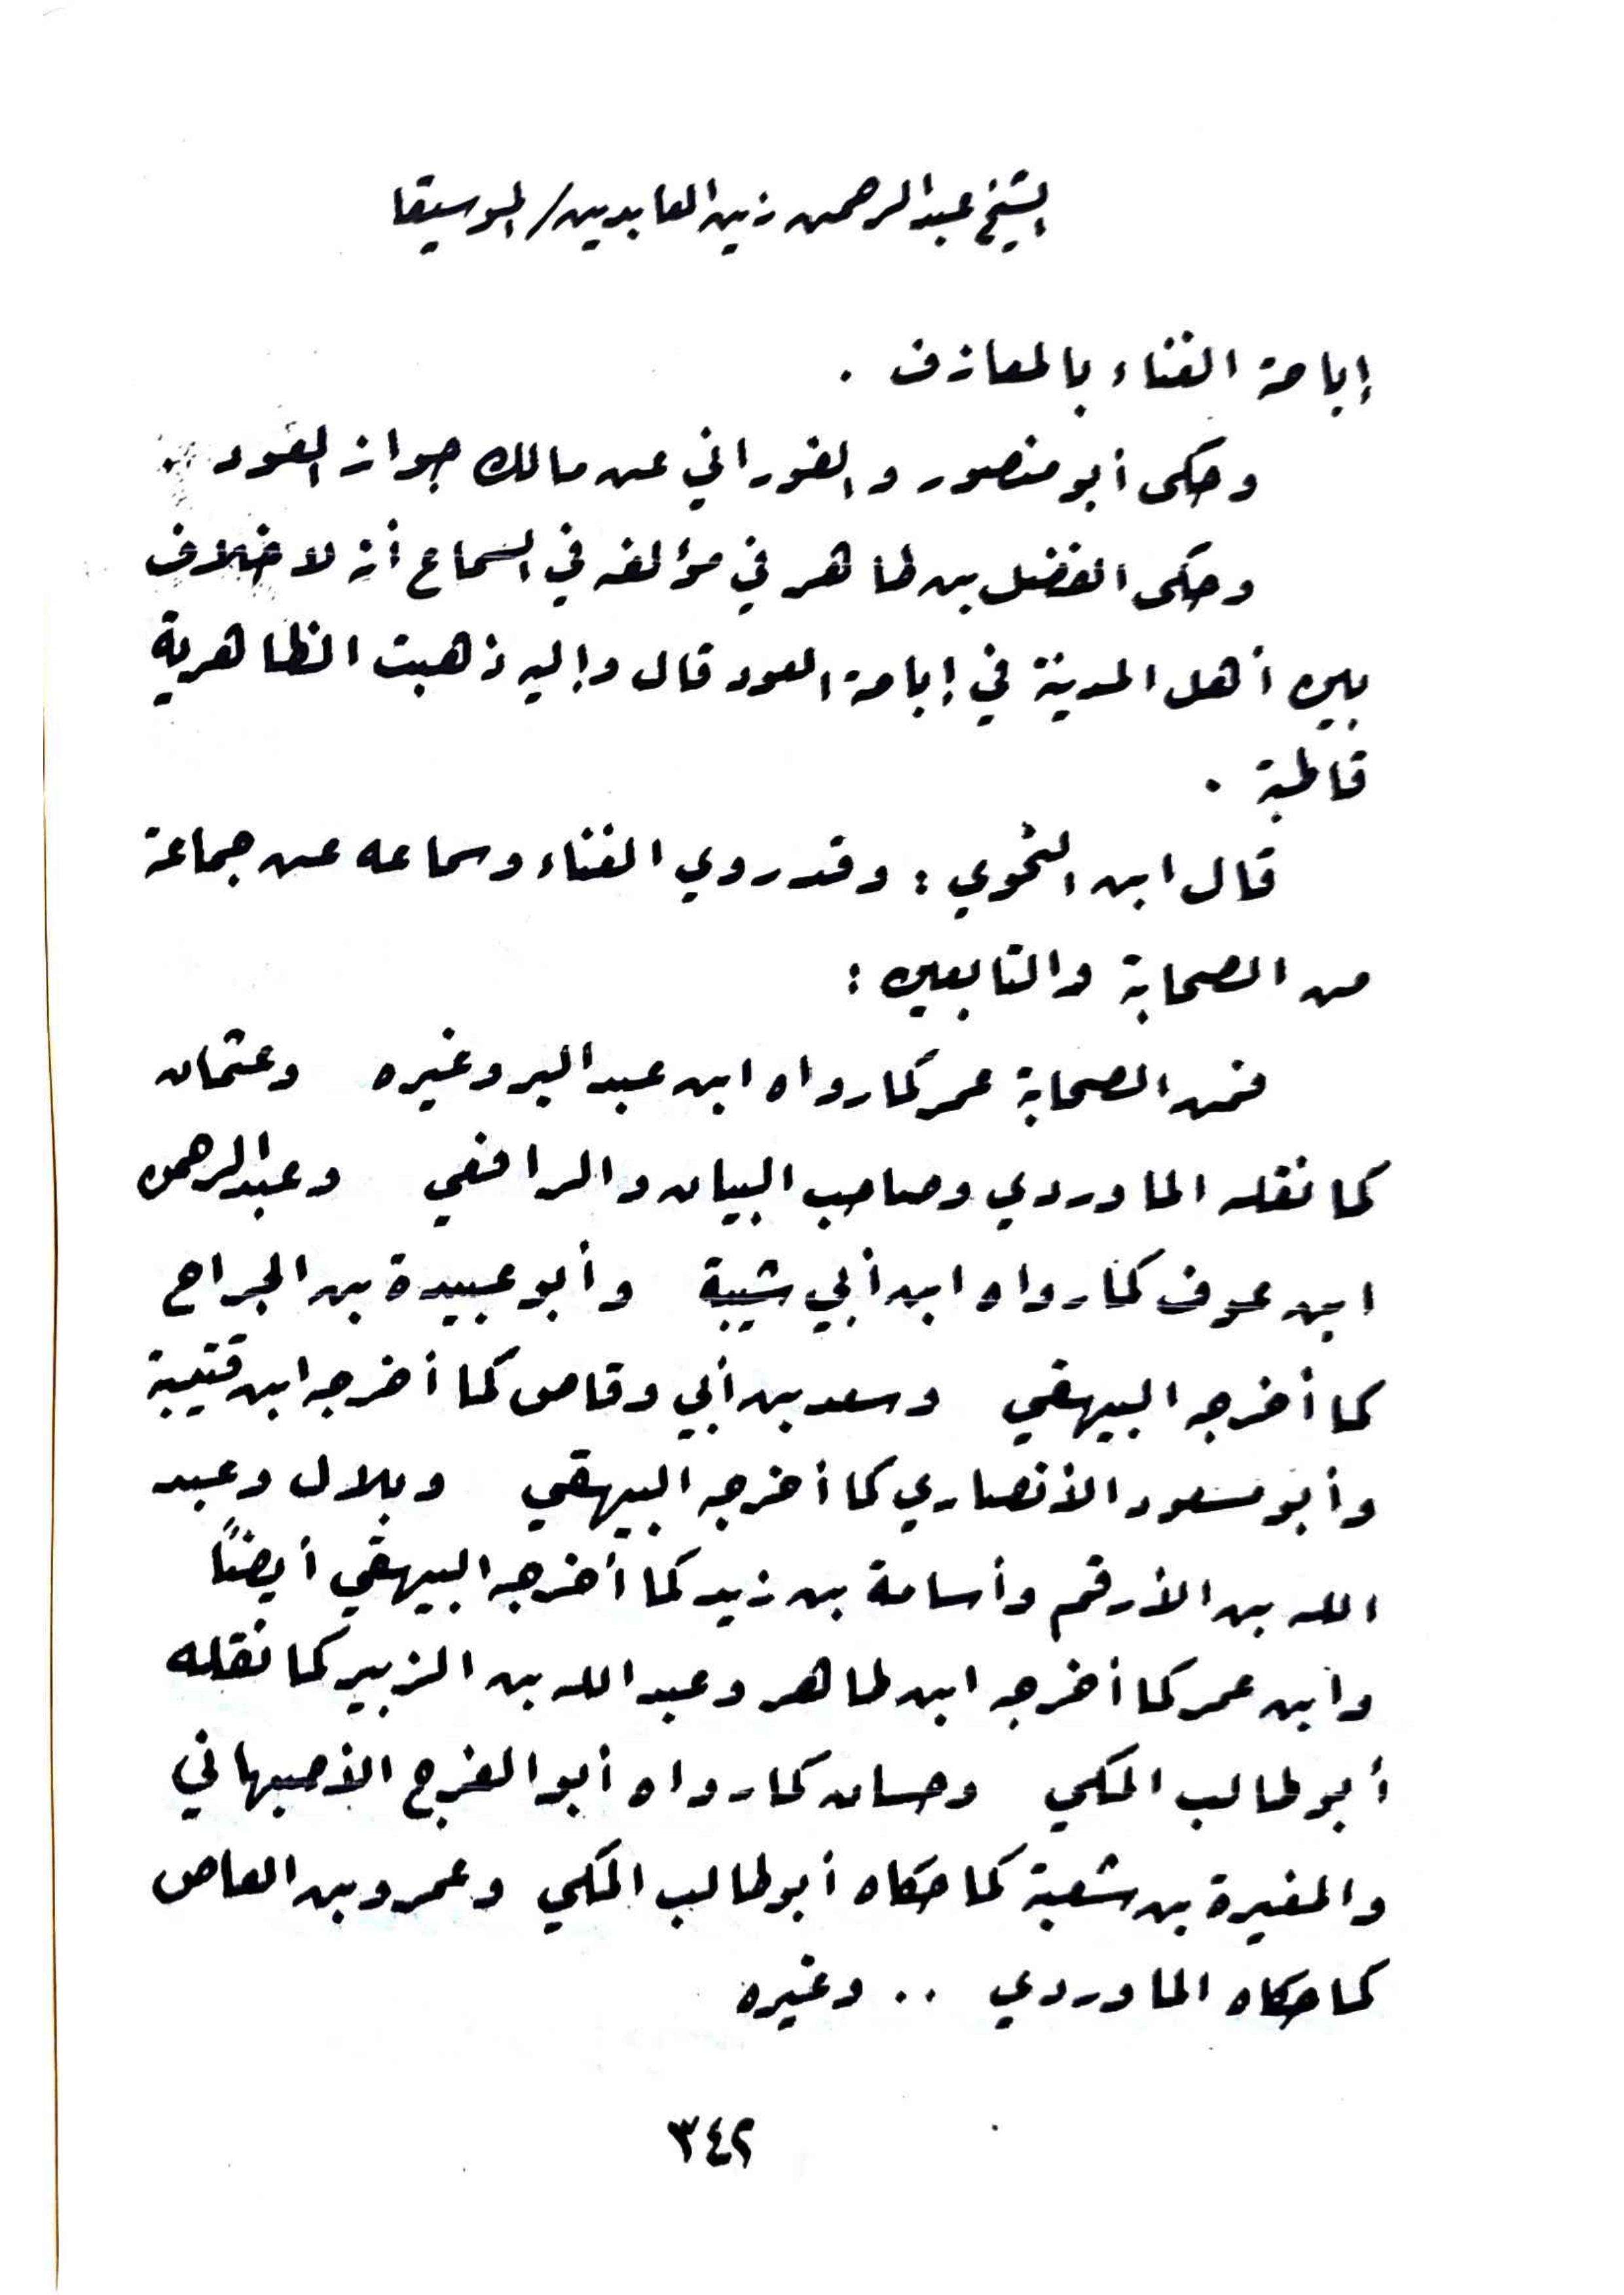 الشيخ عبد الرحمن زين العابدين / الموسيقا
إباحة الغناء بالمعازف .
وحكى أبو منصور والفوراني عن مالك جواز العود ..
وحكى الفضل بن طاهر في مؤلفه في السماع أنه لا خلاف
بين أهل المدينة في إباحة العود قال وإليه ذهبت الظاهرية
قاطبة .
قال ابن النحوي : وقد روي الغناء وسماعه عن جماعة
من الصحابة والتابعين :
فمن الصحابة عمر كما رواه ابن عبد البر وغيره وعثمان
كما نقله الماوردي وصاحب البيان والرافعي وعبد الرحمن
ابن عوف كما رواه ابن أبي شيبة وأبو عبيدة بن الجراح
كما أخرجه البيهقي وسعد بن أبي وقاص كما أخرجه ابن قتيبة
وأبو مسعود الأنصاري كما أخرجه البيهقي وبلال وعبد
الله بن الأرقم وأسامة بن زيد كما أخرجه البيهقي أيضاً
وابن عمر كما أخرجه ابن طاهر وعبد الله بن الزبير كما نقله
أبو طالب المكي وحسان كما رواه أبو الفرج الأصبهاني
والمغيرة بن شعبة كما حكاه أبو طالب المكي وعمرو بن العاص
كما حكاه الماوردي .. وغيره
٣٤٢